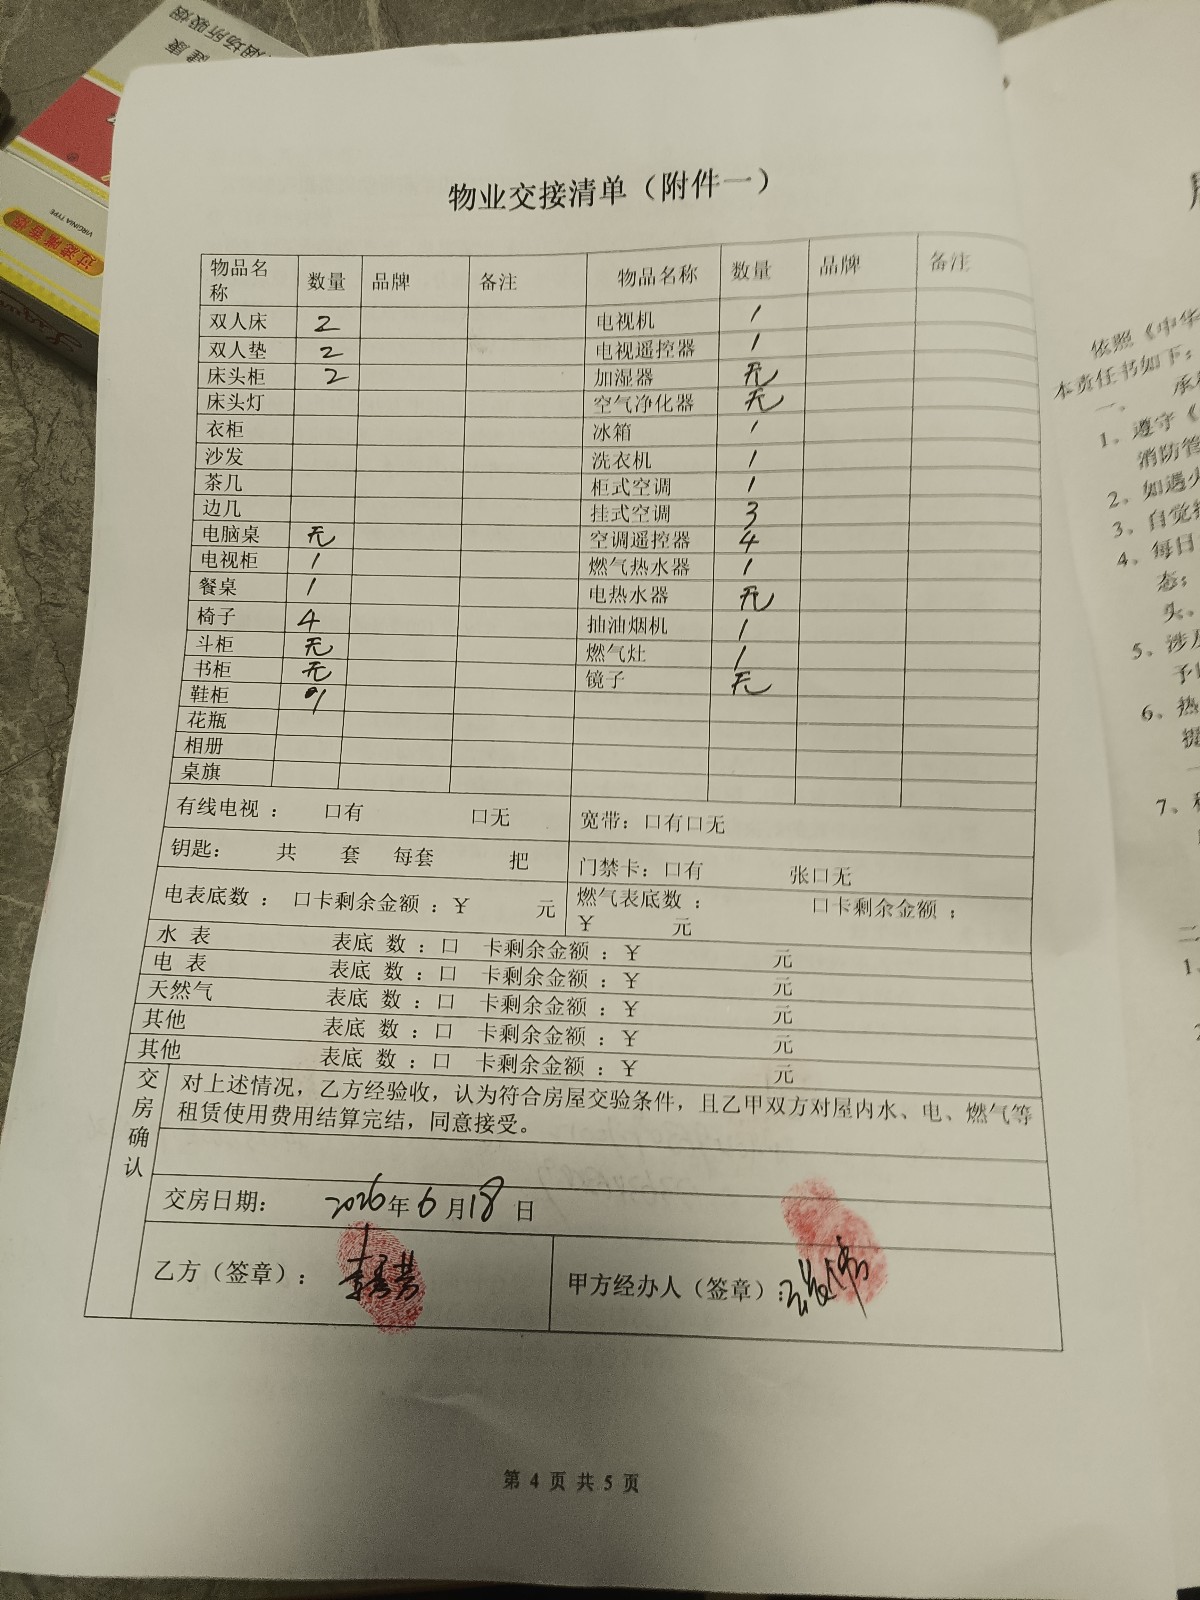 健康
烟场所吸烟
VIRGINIA TYPE
过滤嘴香烟
物业交接清单（附件一）
物品名称 数量 品牌 备注 物品名称 数量 品牌 备注
双人床 2 电视机 1
双人垫 2 电视遥控器 1
床头柜 2 加湿器 无
床头灯 空气净化器 无
衣柜 冰箱 1
沙发 洗衣机 1
茶几 柜式空调 1
边几 挂式空调 3
电脑桌 无 空调遥控器 4
电视柜 1 燃气热水器 1
餐桌 1 电热水器 无
椅子 4 抽油烟机 1
斗柜 无 燃气灶 1
书柜 无 镜子 无
鞋柜
花瓶
相册
桌旗
有线电视： 口有 口无 宽带：口有口无
钥匙： 共 套 每套 把 门禁卡：口有 张口无
电表底数： 口卡剩余金额：¥ 元 燃气表底数： 口卡剩余金额：
¥ 元
水 表 表底 数：口 卡剩余金额：¥ 元
电 表 表底 数：口 卡剩余金额：¥ 元
天然气 表底 数：口 卡剩余金额：¥ 元
其他 表底 数：口 卡剩余金额：¥ 元
其他 表底 数：口 卡剩余金额：¥ 元
交房确认
对上述情况，乙方经验收，认为符合房屋交验条件，且乙甲双方对屋内水、电、燃气等
租赁使用费用结算完结，同意接受。
交房日期： 2026年6月18日
乙方（签章）： 甲方经办人（签章）：
第 4 页 共 5 页
依照《中华
本责任书如下：
一、
1、遵守《
消防管
2、如遇火
3、自觉
4、每日
态；
头。
5、涉及
予以
6、热
7、
二
1、
2